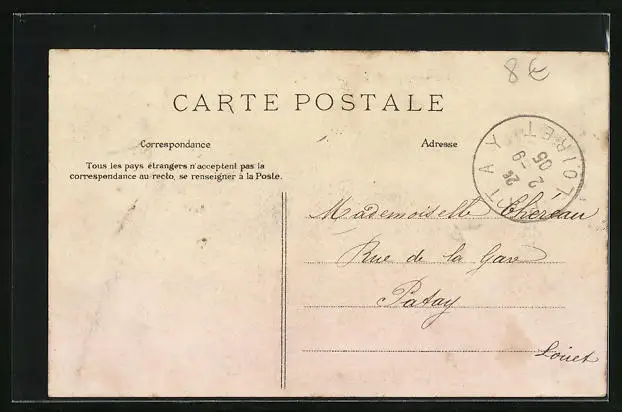 8€
CARTE POSTALE
Correspondance
Tous les pays étrangers n'acceptent pas la
correspondance au recto, se renseigner à la Poste.
Adresse
PATAY
2 05
LOIRET
Mademoiselle Théreau
Rue de la Gare
Patay
Loiret